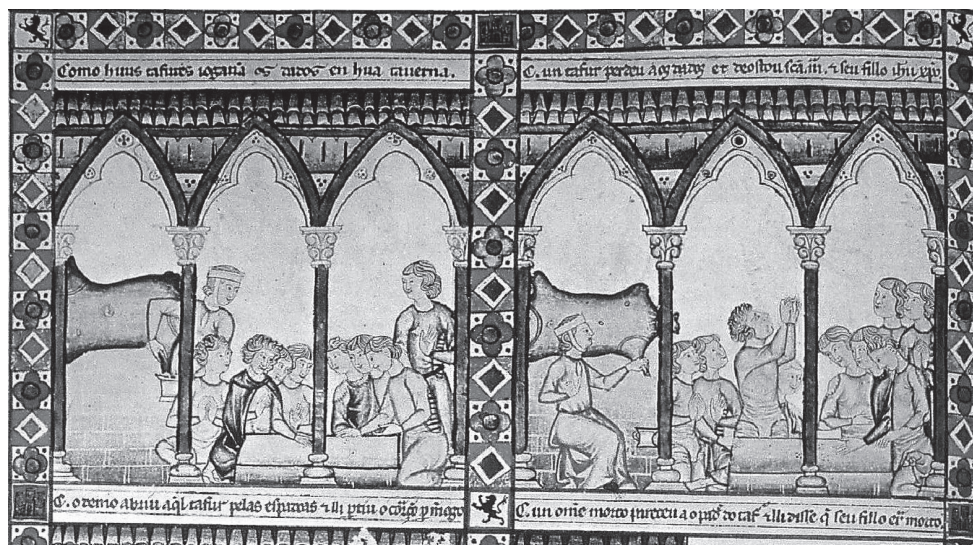 Como huus tafures iogauã os dados en hũa tauerna.
C. un tafur perdeu aos dados et deostou sc̃a. m̃. ⁊ seu fillo ih̃u xp̃o.
C. o demo abriu aql̃ tafur pelas espadoas ⁊ lli ptiu o
C. un ome morto pareceu a o padr̃ do taf̃ ⁊ lli disse q̃ seu fillo er̃ morto.